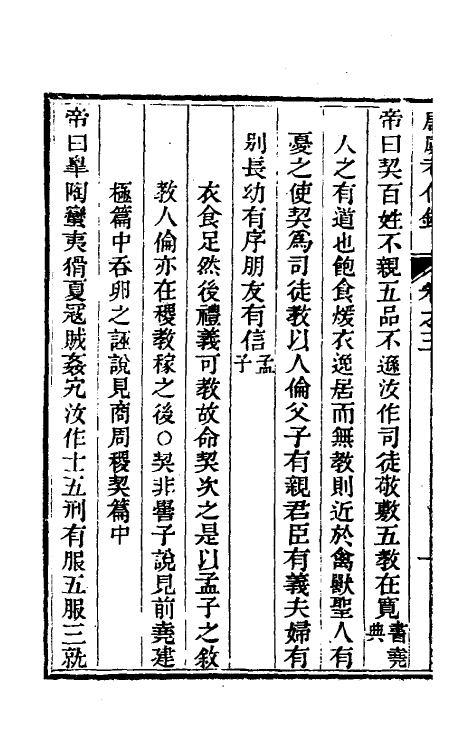 帝曰契百姓不親五品不遜汝作司徒敬敷五教在寬書堯典
人之有道也飽食煖衣逸居而無教則近於禽獸聖人有
憂之使契爲司徒教以人倫父子有親君臣有義夫婦有
別長幼有序朋友有信孟子
衣食足然後禮義可教故命契次之是以孟子之敘
教人倫亦在稷教稼之後○契非嚳子說見前堯建
極篇中吞卵之誣說見商周稷契篇中
帝曰臯陶蠻夷猾夏寇賊姦宄汝作士五刑有服五服三就